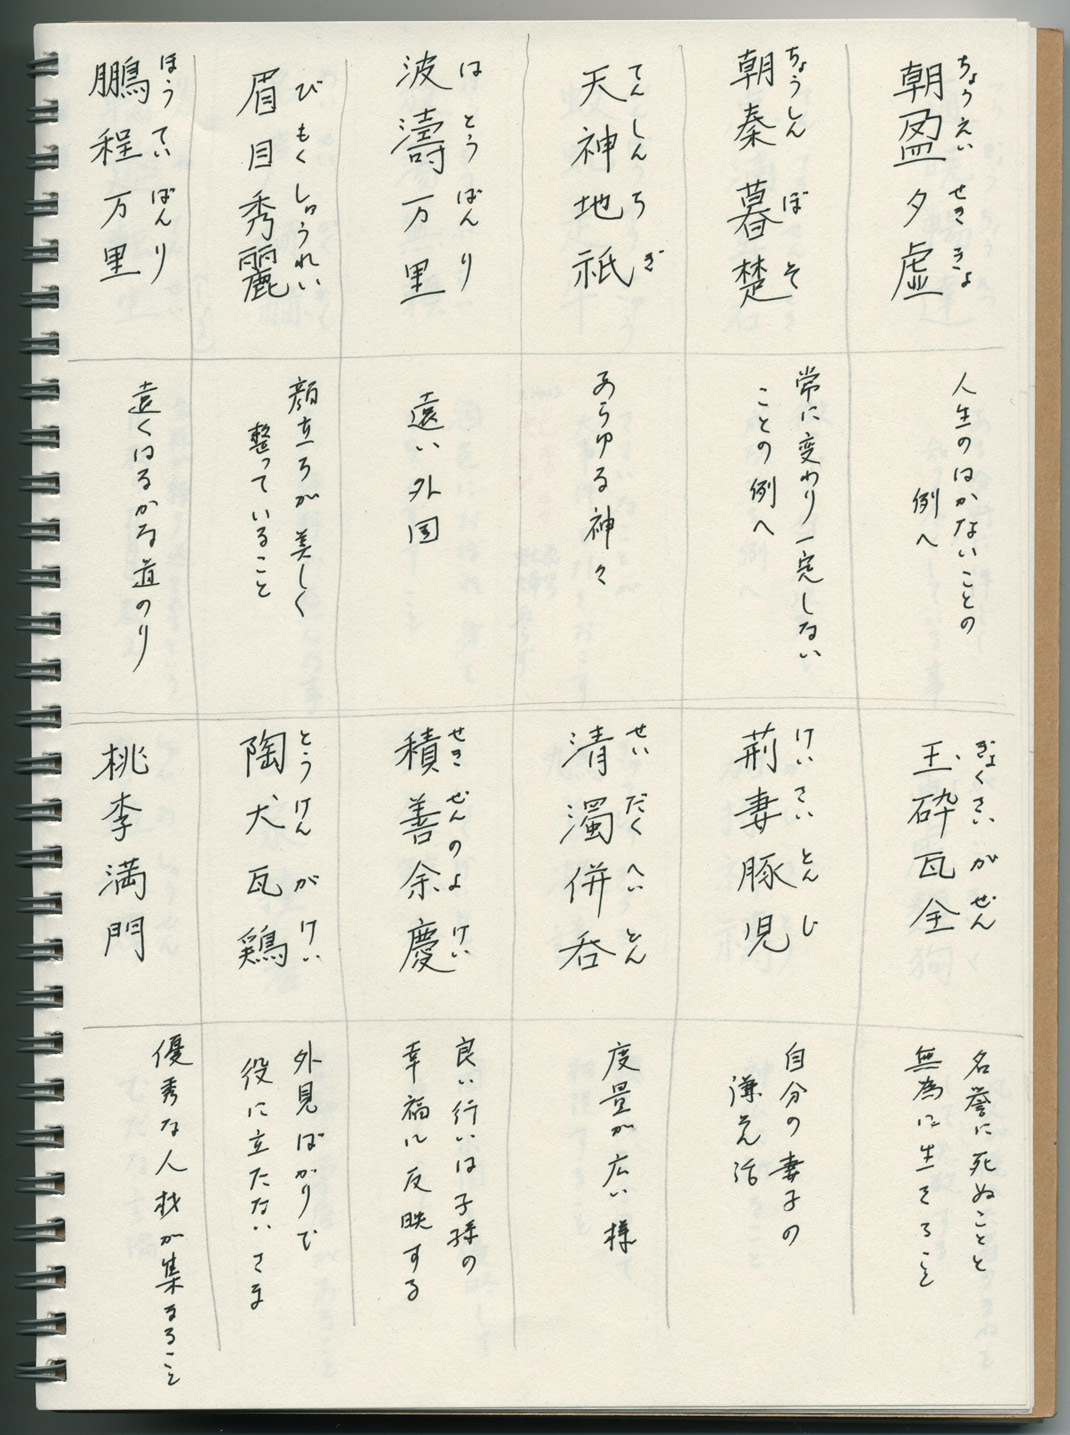 朝盈夕虚
ちょうえいせききょ
人生のはかないことの
例へ
朝秦暮楚
ちょうしんぼそ
常に変わり一定しない
ことの例へ
天神地祇
てんしんちぎ
あらゆる神々
波濤万里
はとうばんり
遠い外国
眉目秀麗
びもくしゅうれい
顔立ちが美しく
整っていること
鵬程万里
ほうていばんり
遠くはるかな道のり
玉砕瓦全
ぎょくさいがぜん
名誉に死ぬことと
無為に生きること
荊妻豚児
けいさいとんじ
自分の妻子の
謙そん語
清濁併呑
せいだくへいどん
度量が広い様
積善余慶
せきぜんのよけい
良い行いは子孫の
幸福に反映する
陶犬瓦鶏
とうけんがけい
外見ばかりで
役に立たないさま
桃李満門
優秀な人材が集まること